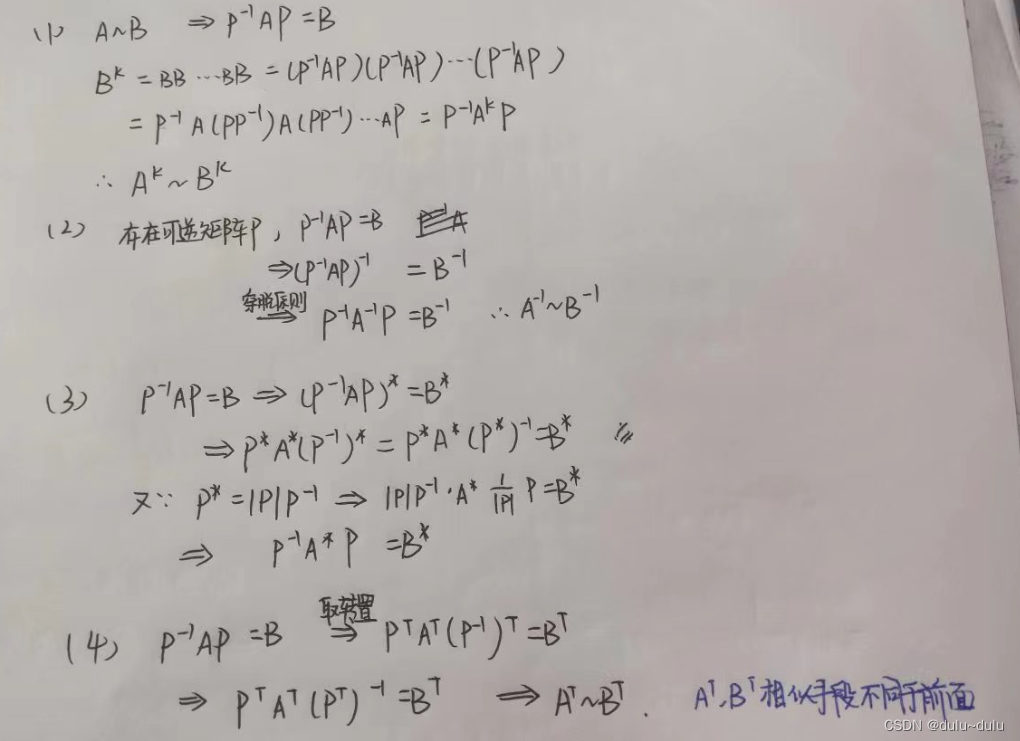 (1) A~B ⇒ P⁻¹AP=B
Bᴷ = BB…BB = (P⁻¹AP)(P⁻¹AP)…(P⁻¹AP)
= P⁻¹A(PP⁻¹)A(PP⁻¹)…AP = P⁻¹AᴷP
∴ Aᴷ~Bᴷ
(2) 存在可逆矩阵P, P⁻¹AP=B
⇒(P⁻¹AP)⁻¹ = B⁻¹
穿脱原则
⇒ P⁻¹A⁻¹P=B⁻¹ ∴ A⁻¹~B⁻¹
(3) P⁻¹AP=B ⇒ (P⁻¹AP)*=B*
⇒ P*A*(P⁻¹)* = P*A*(P*)⁻¹=B*
又∵ P*=|P|P⁻¹ ⇒ |P|P⁻¹·A* 1/|P| P=B*
⇒ P⁻¹A*P =B*
取转置
(4) P⁻¹AP=B ⇒ PᵀAᵀ(P⁻¹)ᵀ=Bᵀ
⇒ PᵀAᵀ(Pᵀ)⁻¹=Bᵀ ⇒ Aᵀ~Bᵀ. Aᵀ、Bᵀ相似手段不同于前面
CSDN @dulu~dulu